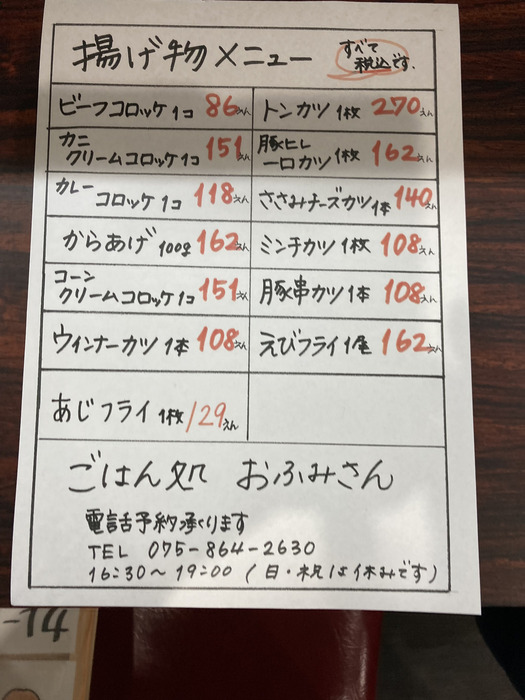 揚げ物メニュー
すべて
税込です.
ビーフコロッケ1コ 86えん
トンカツ1枚 270えん
カニ
クリームコロッケ1コ 151えん
豚ヒレ
一口カツ1枚 162えん
カレー
コロッケ1コ 118えん
ささみチーズカツ1本 140えん
からあげ100g 162えん
ミンチカツ1枚 108えん
コーン
クリームコロッケ1コ 151えん
豚串カツ1本 108えん
ウィンナーカツ1本 108えん
えびフライ1尾 162えん
あじフライ1枚 129えん
ごはん処 おふみさん
電話予約承ります
TEL 075-864-2630
16:30~19:00 (日・祝は休みです)